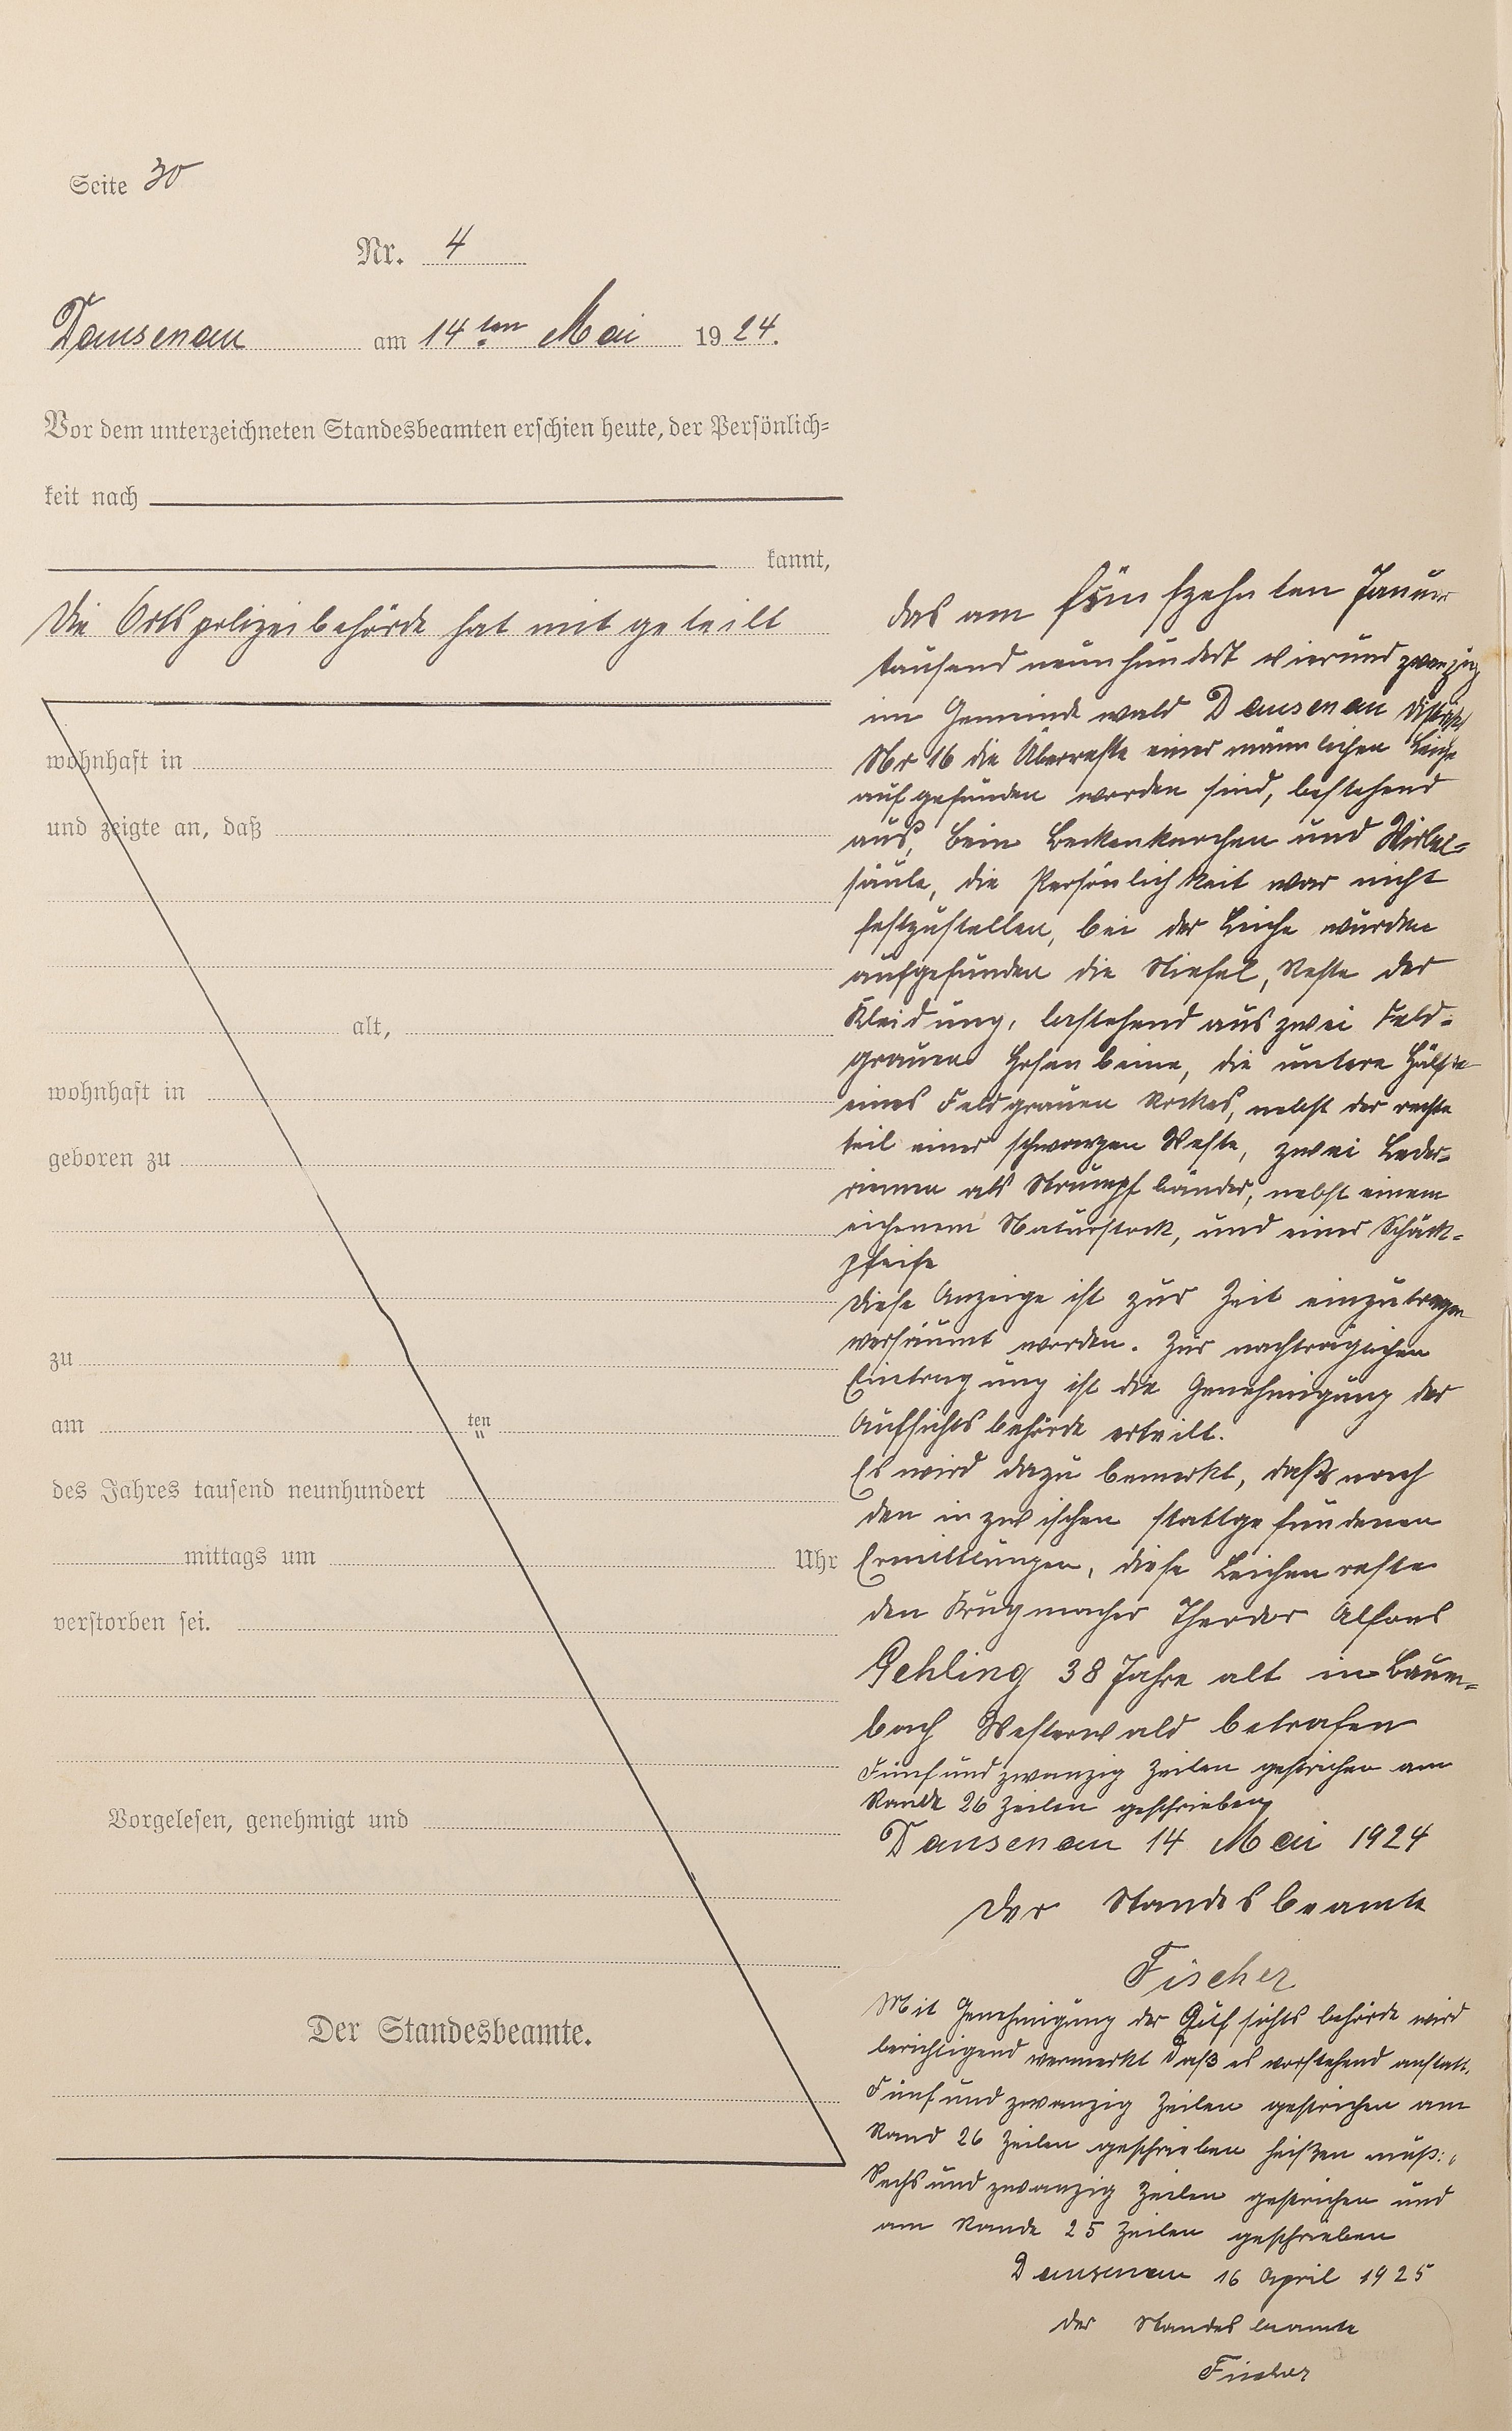 Seite 30
Nr. 4
Dausenau am 14ten Mai 1924.
Vor dem unterzeichneten Standesbeamten erschien heute, der Persönlich=
keit nach
kannt,
Die Ortspolizeibehörde hat mit geteilt
wohnhaft in
und zeigte an, daß
alt,
wohnhaft in
geboren zu
zu
am ten
des Jahres tausend neunhundert
mittags um Uhr
verstorben sei.
Vorgelesen, genehmigt und
Der Standesbeamte.
das am fünfzehnten Januar
tausend neunhundert vierund zwanzig
im Gemeinde wald Dausenau Distrikt
Nr 16 die Überreste einer männlichen Leiche
aufgefunden worden sind, bestehend
aus, Bein Beckenknochen und Wirbel=
säule, die Persönlichkeit war nicht
festzustellen, bei der Leiche wurden
aufgefunden die Stiefel, Reste der
Kleidung, bestehend aus zwei Feld=
grauen Hosenbeine, die untere Hälfte
eines Feldgrauen Rockes, nebst der rechte
teil einer schwarzen Weste, zwei Leder=
riemen als Strumpfbänder, nebst einem
eichenem Naturstock, und einer
pfeife
Diese Anzeige ist zur Zeit einzutragen
versäumt worden. Zur nachträglichen
Eintragung ist die Genehmigung der
Aufsichtsbehörde erteilt.
Es wird dazu bemerkt, daß nach
den inzwischen stattgefundenen
Ermittlungen, diese Leichenreste
den Krugmacher Theodor Alfons
Gehling 38 Jahre alt in Baum=
bach Westerwald betrafen
Fünfundzwanzig Zeilen gestrichen am
Rande 26 Zeilen geschrieben
Dausenau 14 Mai 1924
Der Standesbeamte
Fischer
Mit Genehmigung der Aufsichts behörde wird
berichtigend vermerkt daß es vorstehend anstatt.
Fünfundzwanzig Zeilen gestrichen am
Rand 26 Zeilen geschrieben heißen muß:
Sechsundzwanzig Zeilen gestrichen und
am Rande 25 Zeilen geschrieben
Dausenau 16 April 1925
Der Standesbeamte
Fischer